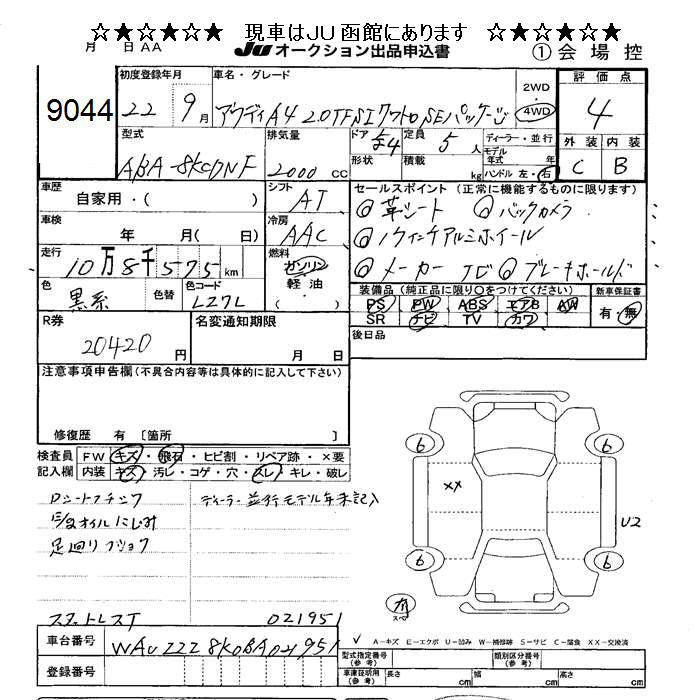 ☆★☆★☆★☆ 現車はJU函館にあります ☆★☆★☆★☆
月 日 AA JU オークション出品申込書 ① 会場控
9044
初度登録年月 車名・グレード 2WD ・ 4WD 評価点
22 9月 アウディA4 2.0TFSIクワトロSEパッケージ 4
型式 排気量 ドア 定員 ディーラー・並行 外装 内装
ABA-8KCDNF 2000 CC 4 5人 モデル年式 年 C B
形状 積載 kg ハンドル 左・右
車歴 シフト セールスポイント(正常に機能するものに限ります)
自家用・( ) AT ◎革シート ◎バックカメラ
車検 冷房
年 月( 日) AAC ◎ インチアルミホイール
走行 燃料
10万8千575km ガソリン ・ 軽油 ・ ( ) ◎メーカーナビ ◎ブレーキホールド
色 色替 色コード 装備品(純正品に限り○をつけてください) 新車保証書
黒系 LZ7L PS PW ABS エアB AW 有・無
SR ナビ TV カワ
R券 名変通知期限 後日品
20420円 月 日
注意事項申告欄(不具合内容等は具体的に記入して下さい)
修復歴 有 [箇所 ]
検査員記入欄 FW キズ・飛石・ヒビ割・リペア跡・×要
内装 キズ・汚レ・コゲ・穴・スレ・キレ・破レ
ディーラー・並行モデル年未記入
オイルにじみ
足回りブッシュ
6 6
XX
U2
6 6
ガ スペ
スタットレスT 021951
車台番号 WAUZZZ8K0BA021951
登録番号
✓ A-キズ E-エクボ U-凹み W-補修跡 S-サビ C-腐食 XX-交換済
型式指定番号(参考) 類別区分番号(参考)
車庫証明用(参考) 長さ cm 幅 cm 高さ cm